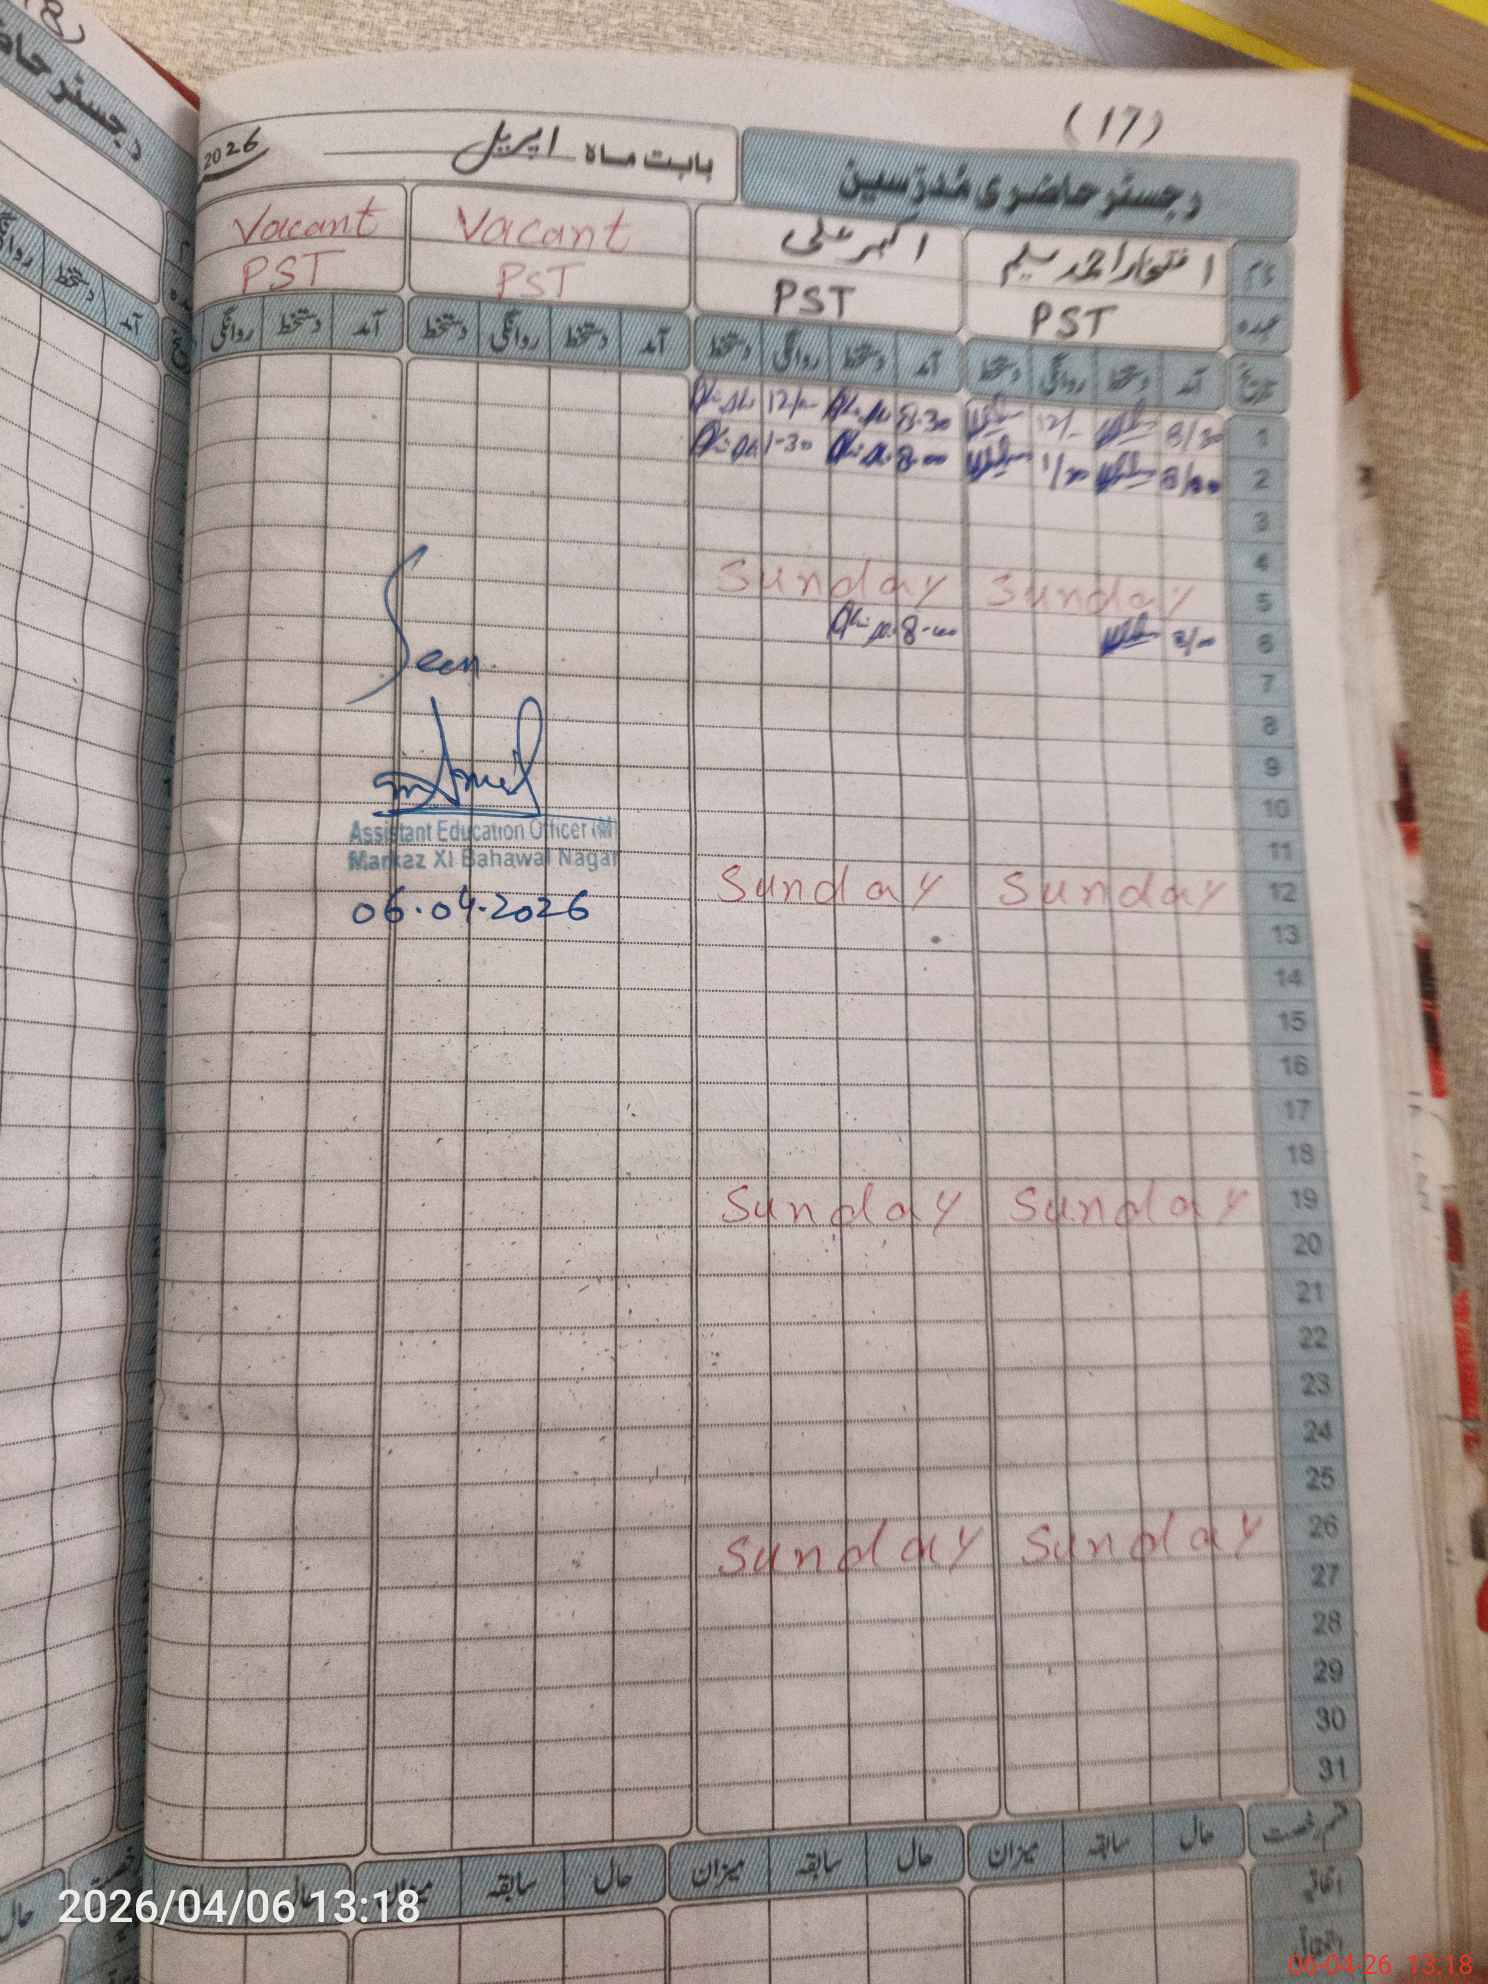 (17)
رجسٹر حاضری مُدرّسین
بابت ماہ اپریل 2026
نام افتخار احمد سلیم اکبر علی Vacant Vacant
عہدہ PST PST PST PST
تاریخ آمد دستخط روانگی دستخط آمد دستخط روانگی دستخط آمد دستخط روانگی دستخط آمد دستخط روانگی
1 8/30 12/- 8.30 12/-
2 8/00 1/30 8-00 1-30
3
4
5 Sunday Sunday
6 8/00 8-00
7
8
9
10
11
12 Sunday Sunday
13
14
15
16
17
18
19 Sunday Sunday
20
21
22
23
24
25
26 Sunday Sunday
27
28
29
30
31
Seen
Assistant Education Officer (M)
Markaz XI Bahawal Nagar
06.04.2026
قسم رخصت حال سابقہ میزان حال سابقہ میزان حال سابقہ میزان حال سابقہ
اتفاقیہ
رجسٹر حاض
آمد دستخط
حال
2026/04/06 13:18
06-04-26 13:18